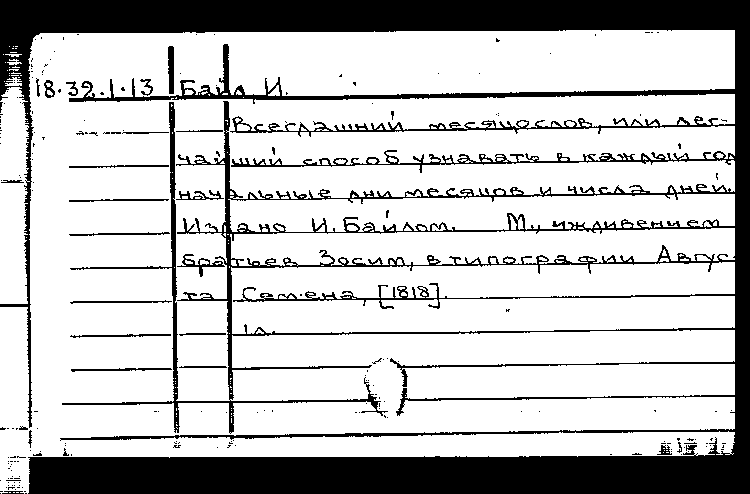 18.32.1.13 Байл, И.
Всегдашний месяцослов, или лег-
чайший способ узнавать в каждый год
начальные дни месяцов и числа дней.
Издано И. Байлом. М., иждивением
братьев Зосим, в типографии Авгус-
та Семена, [1818].
1л.